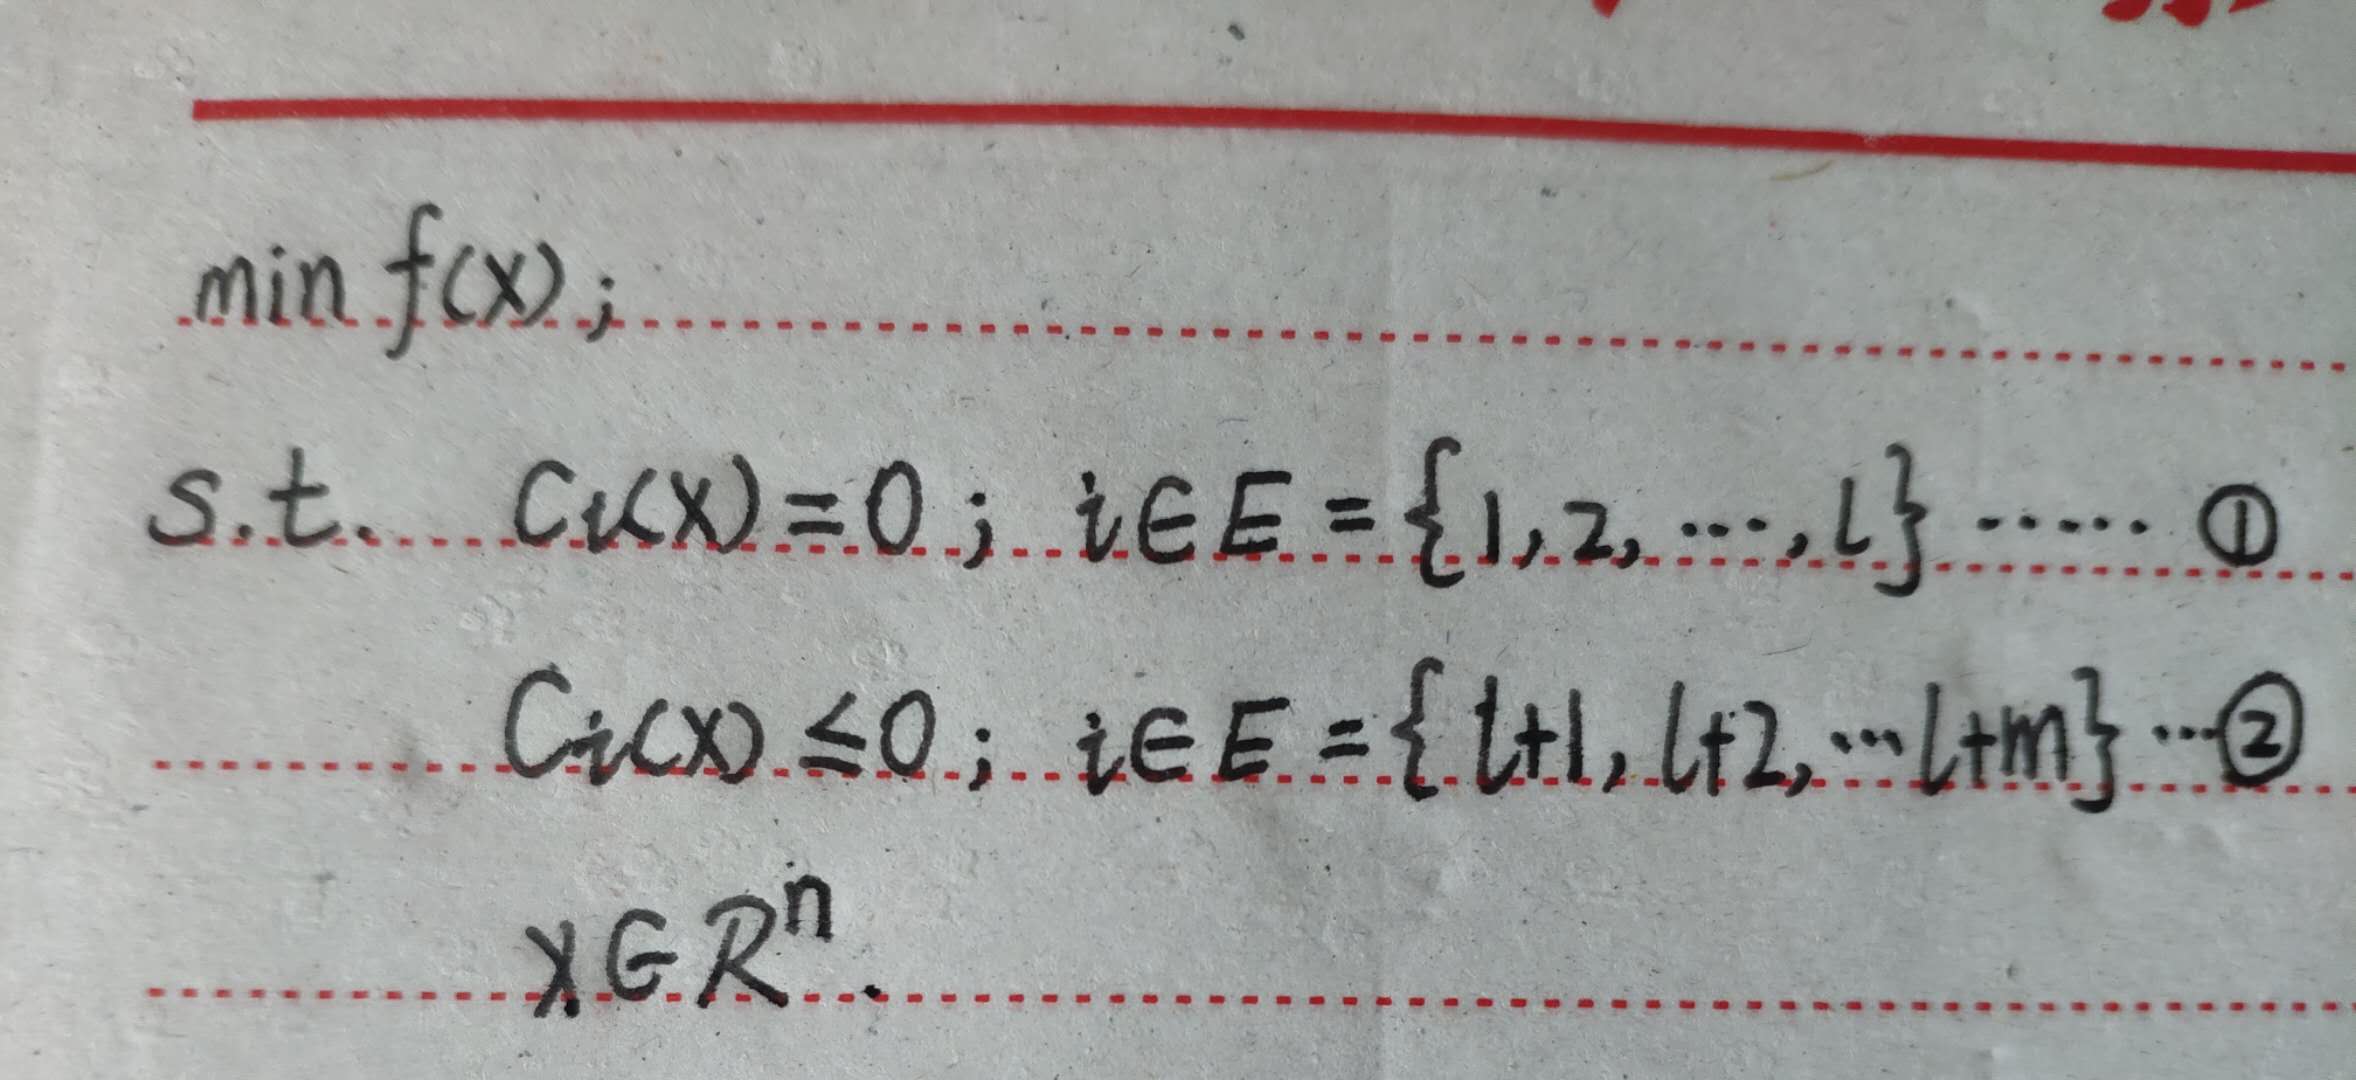 min f(x);
s.t. Ci(x)=0; i∈E={1,2,…,l}……①
Ci(x)≤0; i∈E={l+1,l+2,…l+m}…②
x∈Rⁿ.